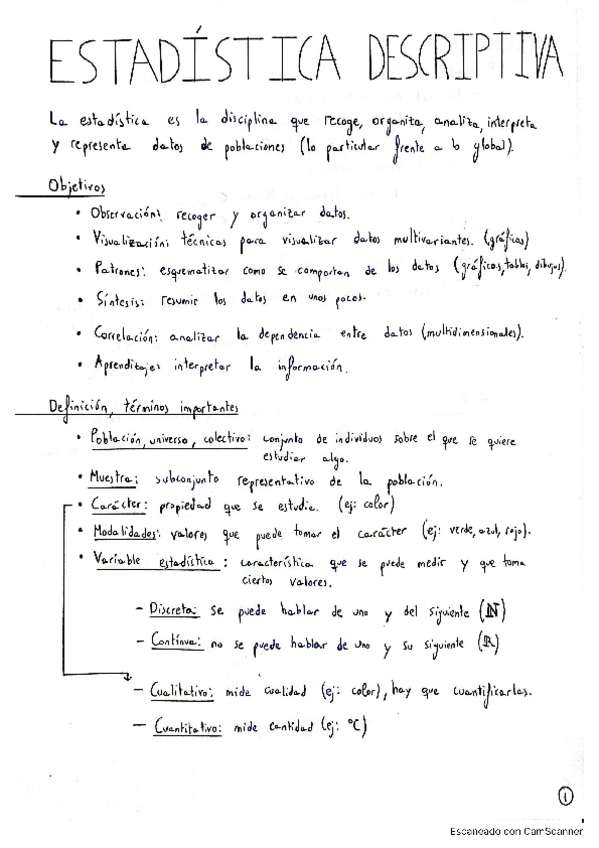 ESTADÍSTICA DESCRIPTIVA
La estadística es la disciplina que recoge, organiza, analiza, interpreta
y representa datos de poblaciones (lo particular frente a lo global).
Objetivos
• Observación: recoger y organizar datos.
• Visualización: técnicas para visualizar datos multivariantes. (gráficos)
• Patrones: esquematizar como se comportan de los datos (gráficos, tablas, dibujos).
• Síntesis: resumir los datos en unos pocos.
• Correlación: analizar la dependencia entre datos (multidimensionales).
• Aprendizaje: interpretar la información.
Definición, términos importantes
• Población, universo, colectivo: conjunto de individuos sobre el que se quiere
estudiar algo.
• Muestra: subconjunto representativo de la población.
• Carácter: propiedad que se estudia. (ej: color)
• Modalidades: valores que puede tomar el carácter (ej: verde, azul, rojo).
• Variable estadística: característica que se puede medir y que toma
ciertos valores.
- Discreta: se puede hablar de uno y del siguiente (ℕ)
- Contínua: no se puede hablar de uno y su siguiente (ℝ)
- Cualitativo: mide cualidad (ej: color), hay que cuantificarlas.
- Cuantitativo: mide cantidad (ej: ºC)
1
Escaneado con CamScanner